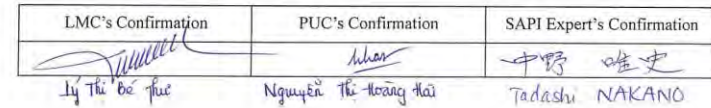 LMC's Confirmation PUC's Confirmation SAPI Expert's Confirmation
中野 唯史
Lý Thi Bé Nguyễn Thị Hoàng Hải Tadashi NAKANO